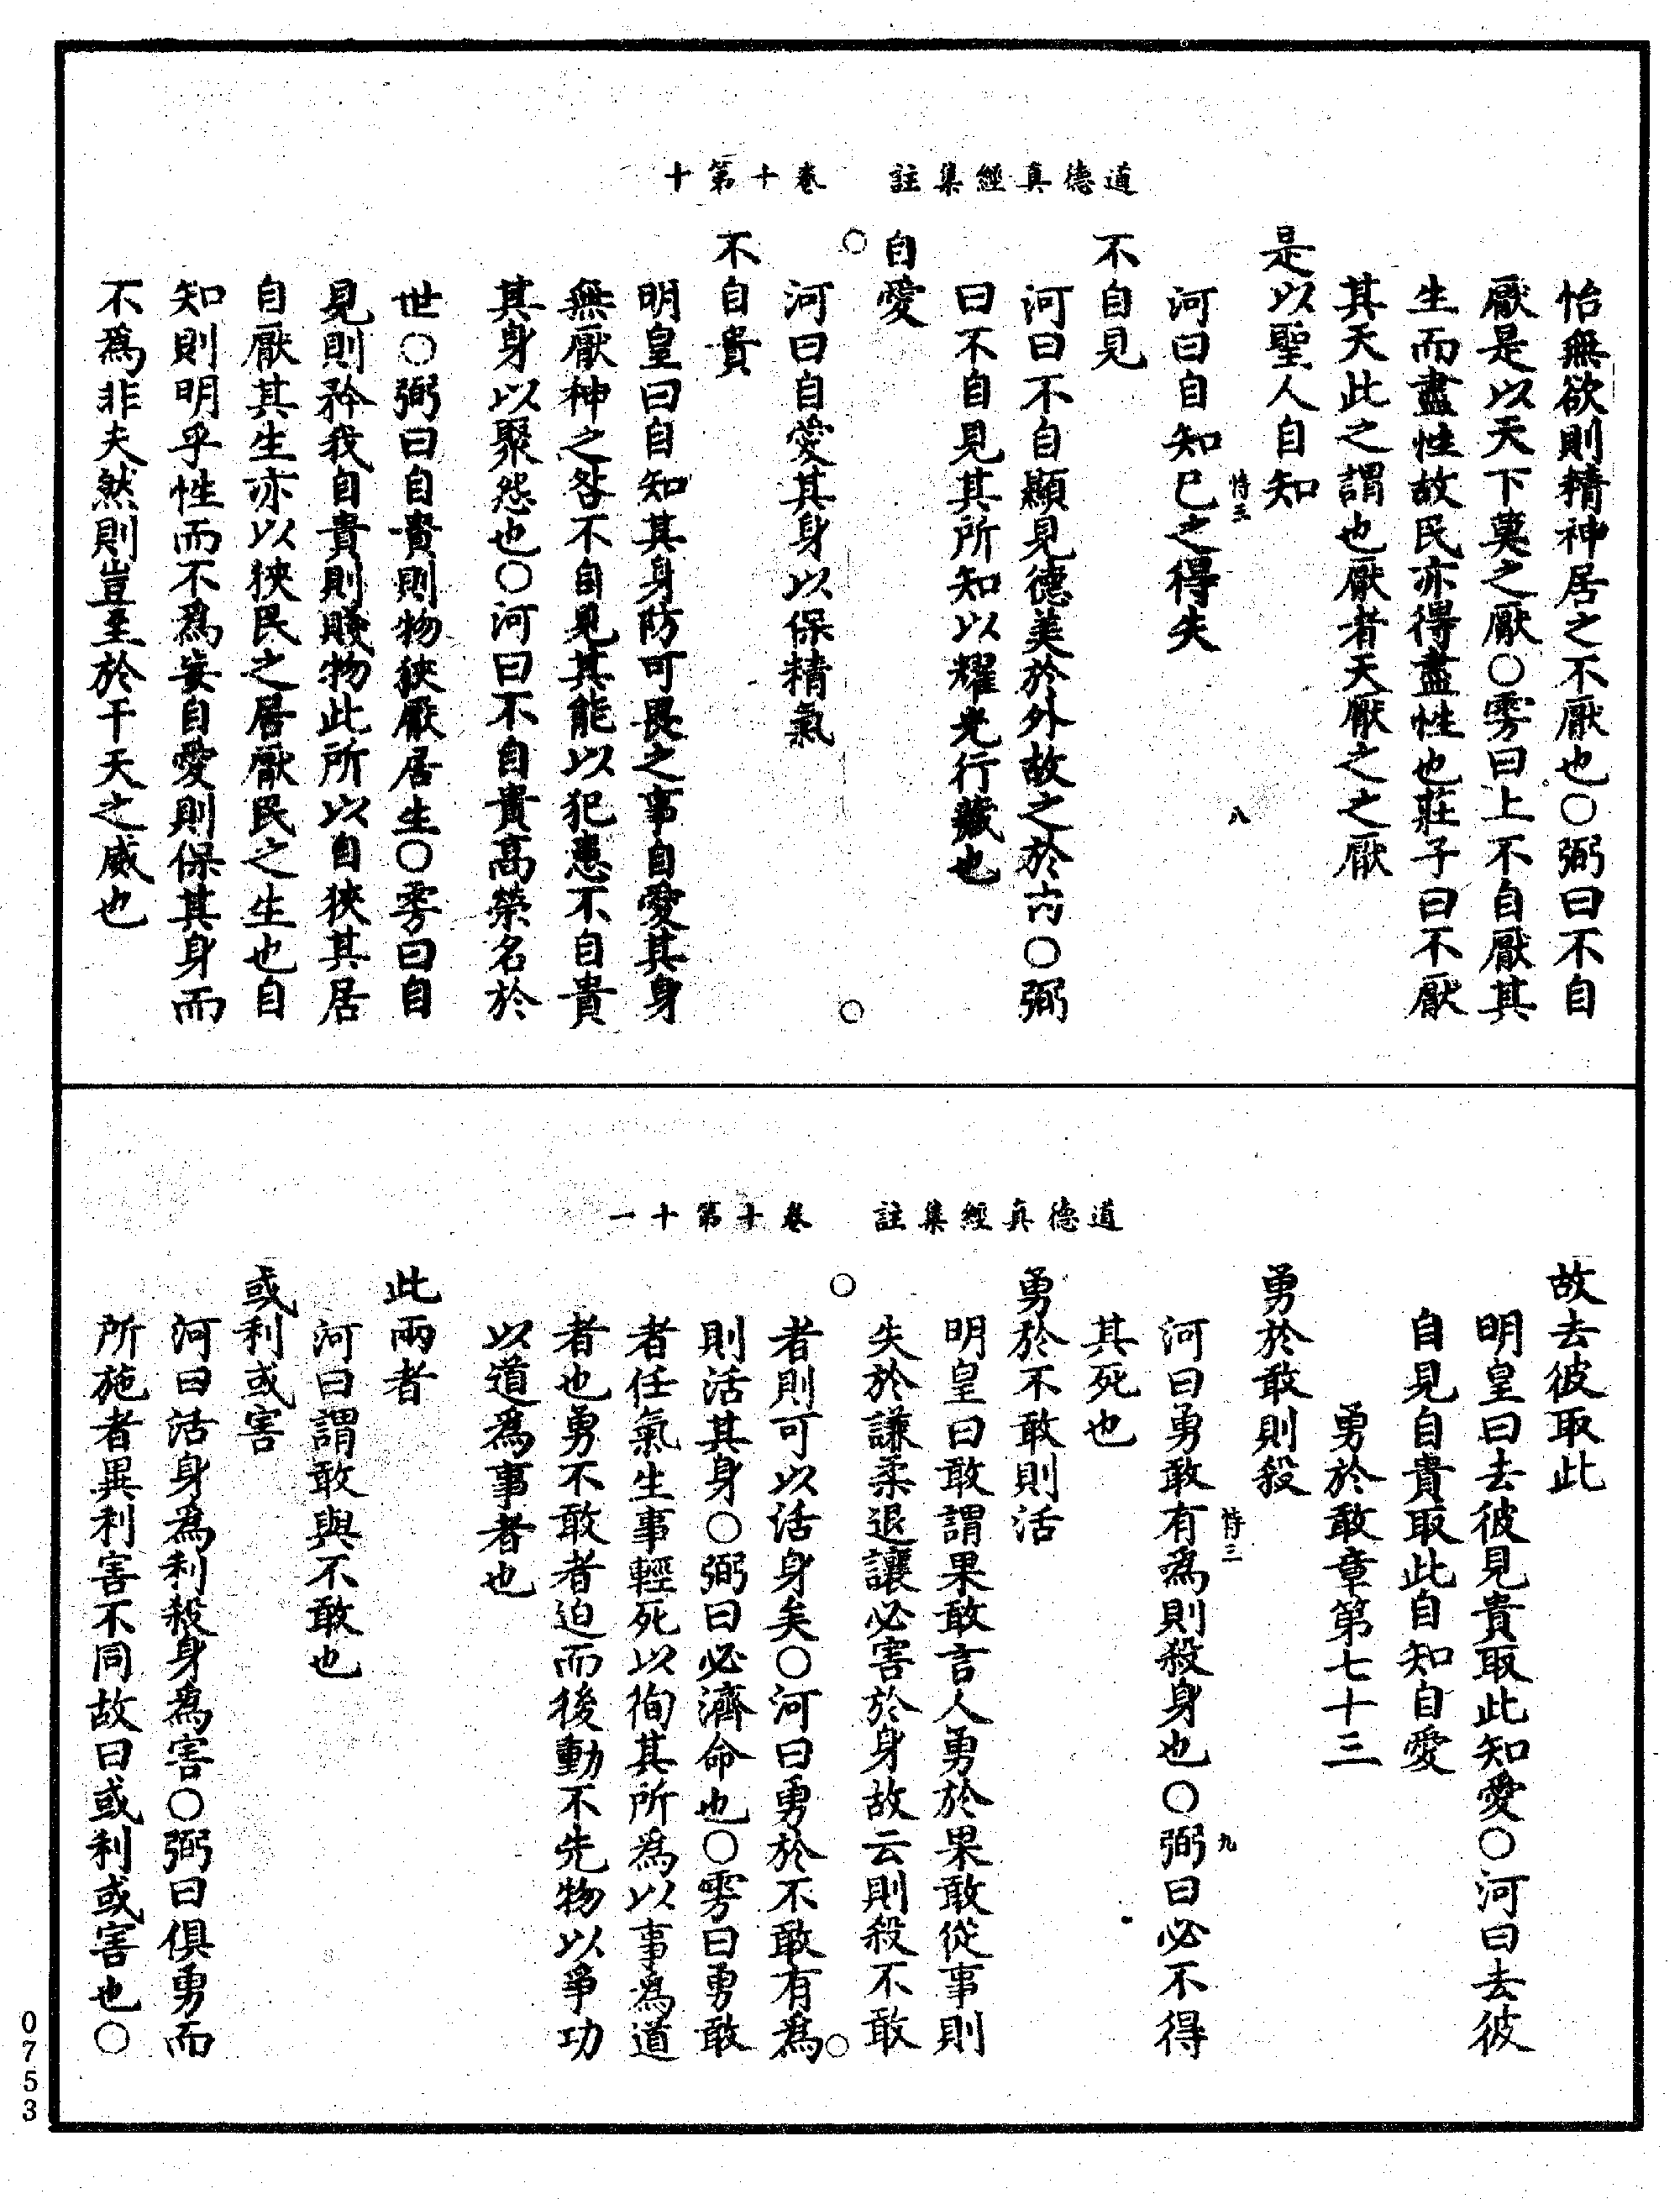 道德真經集註　卷十第十
怡無欲則精神居之不厭也○弼曰不自
厭是以天下莫之厭○雱曰上不自厭其
生而盡性故民亦得盡性也莊子曰不厭
其天此之謂也厭者天厭之之厭
是以聖人自知
恃三　八
河曰自知已之得失
不自見
河曰不自顯見德美於外故之於内○弼
曰不自見其所知以耀光行藏也
自愛
○　○
河曰自愛其身以保精氣
不自貴
明皇曰自知其身防可畏之事自愛其身
無厭神之咎不自見其能以犯患不自貴
其身以聚怨也○河曰不自貴高榮名於
世○弼曰自貴則物狹厭居生○雱曰自
見則矜我自貴則賤物此所以自狹其居
自厭其生亦以狹民之居厭民之生也自
知則明乎性而不爲妄自愛則保其身而
不爲非夫然則豈至於干天之威也
道德真經集註　卷十第十一
故去彼取此
明皇曰去彼見貴取此知愛○河曰去彼
自見自貴取此自知自愛
勇於敢章第七十三
勇於敢則殺
恃三　九
河曰勇敢有爲則殺身也○弼曰必不得
其死也
勇於不敢則活
明皇曰敢謂果敢言人勇於果敢從事則
失於謙柔退讓必害於身故云則殺不敢
○　○
者則可以活身矣○河曰勇於不敢有爲
則活其身○弼曰必濟命也○雱曰勇敢
者任氣生事輕死以徇其所爲以事爲道
者也勇不敢者迫而後動不先物以爭功
以道爲事者也
此兩者
河曰謂敢與不敢也
或利或害
河曰活身爲利殺身爲害○弼曰俱勇而
所施者異利害不同故曰或利或害也○
0753